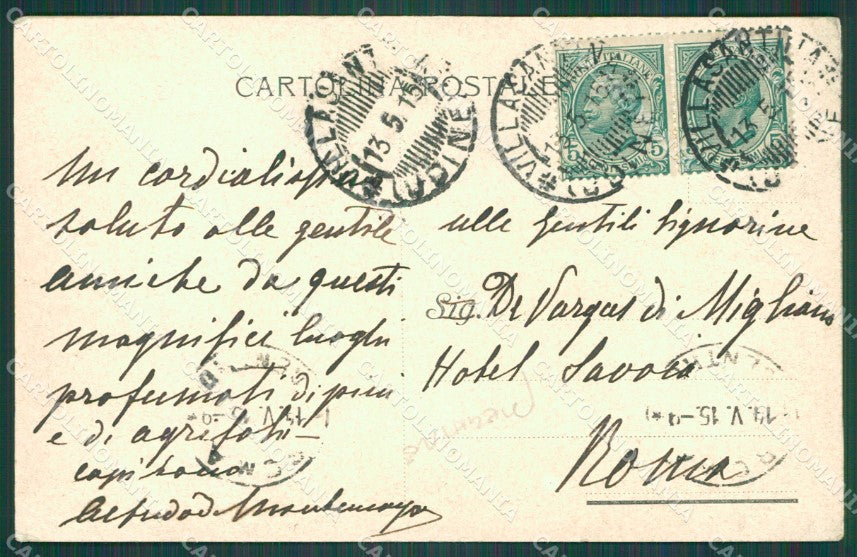 CARTOLINA POSTALE
VILLASANTINA
13.5.15
(UDINE)
Un cordialissimo
saluto alle gentili
amiche da questi
magnifici luoghi
profumati di pini
e di agrifogli
Alle gentili Signorine
Sig. De Vargas di Migliano
Hotel Savoia
Roma
ROMA CENTRO
13.V.15-9
CARTOLINOMANIA